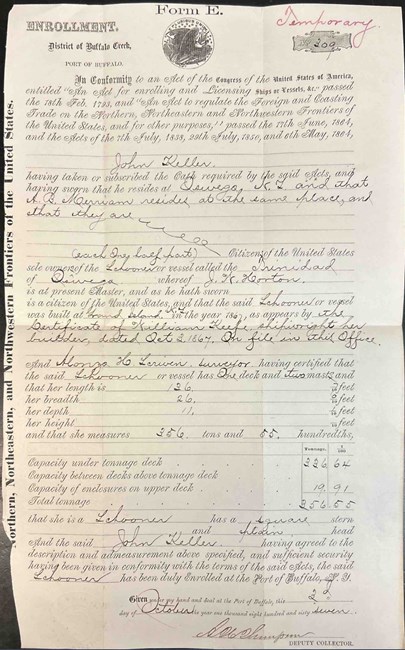 Form E.
Temporary
ENROLLMENT.
309
District of Buffalo Creek,
PORT OF BUFFALO.
In Conformity to an Act of the Congress of the United States of America,
entitled "An Act for enrolling and Licensing Ships or Vessels, &c." passed
the 18th Feb. 1793, and "An Act to regulate the Foreign and Coasting
Trade on the Northern, Northeastern and Northwestern Frontiers of
the United States, and for other purposes," passed the 17th June, 1864,
and the Acts of the 7th July, 1838, 29th July, 1850, and 6th May, 1864,
John Keller
having taken or subscribed the Oath required by the said Acts, and
having sworn that he resides at Oswego, N.Y. and that
A. G. Merriam resides at the same place, and
that they are
(each one half part) Citizens of the United States
sole owners of the Schooner or vessel called the Trinidad
of Oswego whereof J. H. Horton,
is at present Master, and as he hath sworn
is a citizen of the United States, and that the said Schooner or vessel
was built at Grand Island N.Y. in the year 1867, as appears by the
Certificate of William Keefe, shipwright her
builder, dated Oct 2, 1867, On file in this Office.
And Alonzo H. surveyor having certified that
the said Schooner or vessel has One deck and two masts and
that her length is 126, feet
her breadth 26, feet
her depth 11, feet
her height feet
and that she measures 256 tons and 55 hundredths,
Tonnage. 100
Capacity under tonnage deck 236 64
Capacity between decks above tonnage deck
Capacity of enclosures on upper deck 19 91
Total tonnage 256 55
that she is a Schooner has a square stern
and plain head
And the said John Keller having agreed to the
description and admeasurement above specified, and sufficient security
having been given in conformity with the terms of the said Acts, the said
Schooner has been duly Enrolled at the Port of Buffalo, N. Y.
Given under my hand and seal at the Port of Buffalo, this 23
day of October in year one thousand eight hundred and sixty seven.
DEPUTY COLLECTOR.
Northern, Northeastern, and Northwestern Frontiers of the United States.